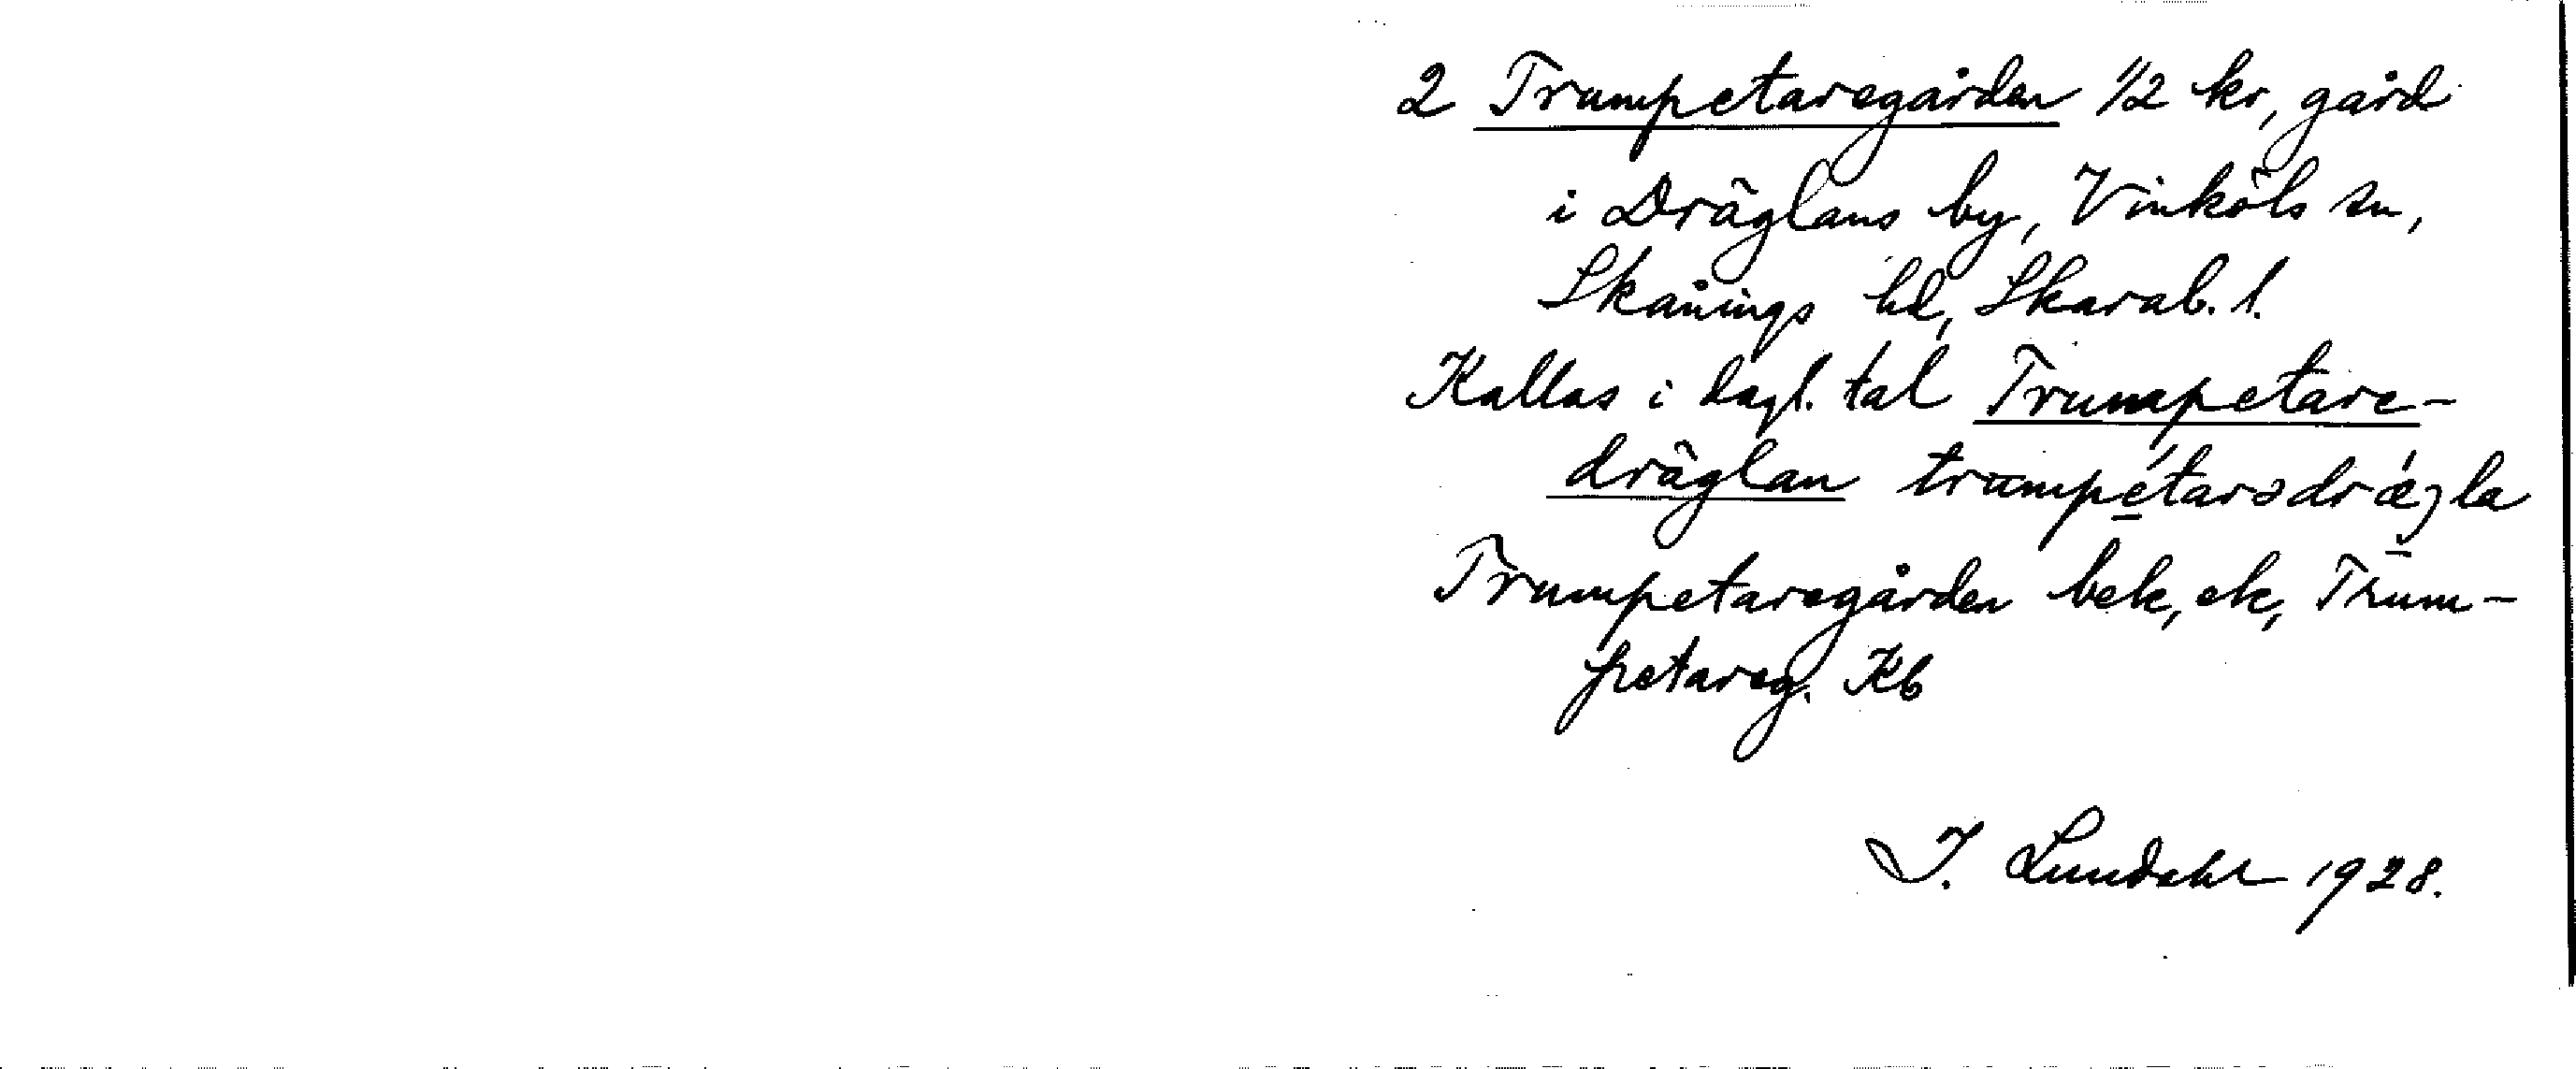 2 Trumpetaregården 1/2 kr, gård
i Dräglans by, Vinköls sn,
Skånings hd, Skarab. l.
Kallas i dagl. tal Trumpetare-
dräglan trumpétarədrǽgla
Trumpetaregården bek, ek, Trum-
petareg. Kb
I. Lundahl 1928.